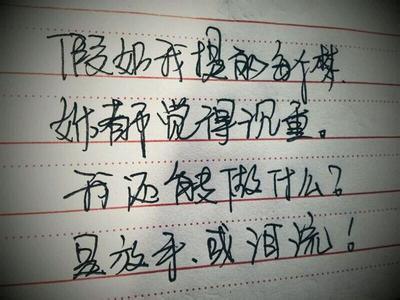 假如我提的每个梦.
你都觉得沉重。
我还能做什么?
是放手、或泪流!